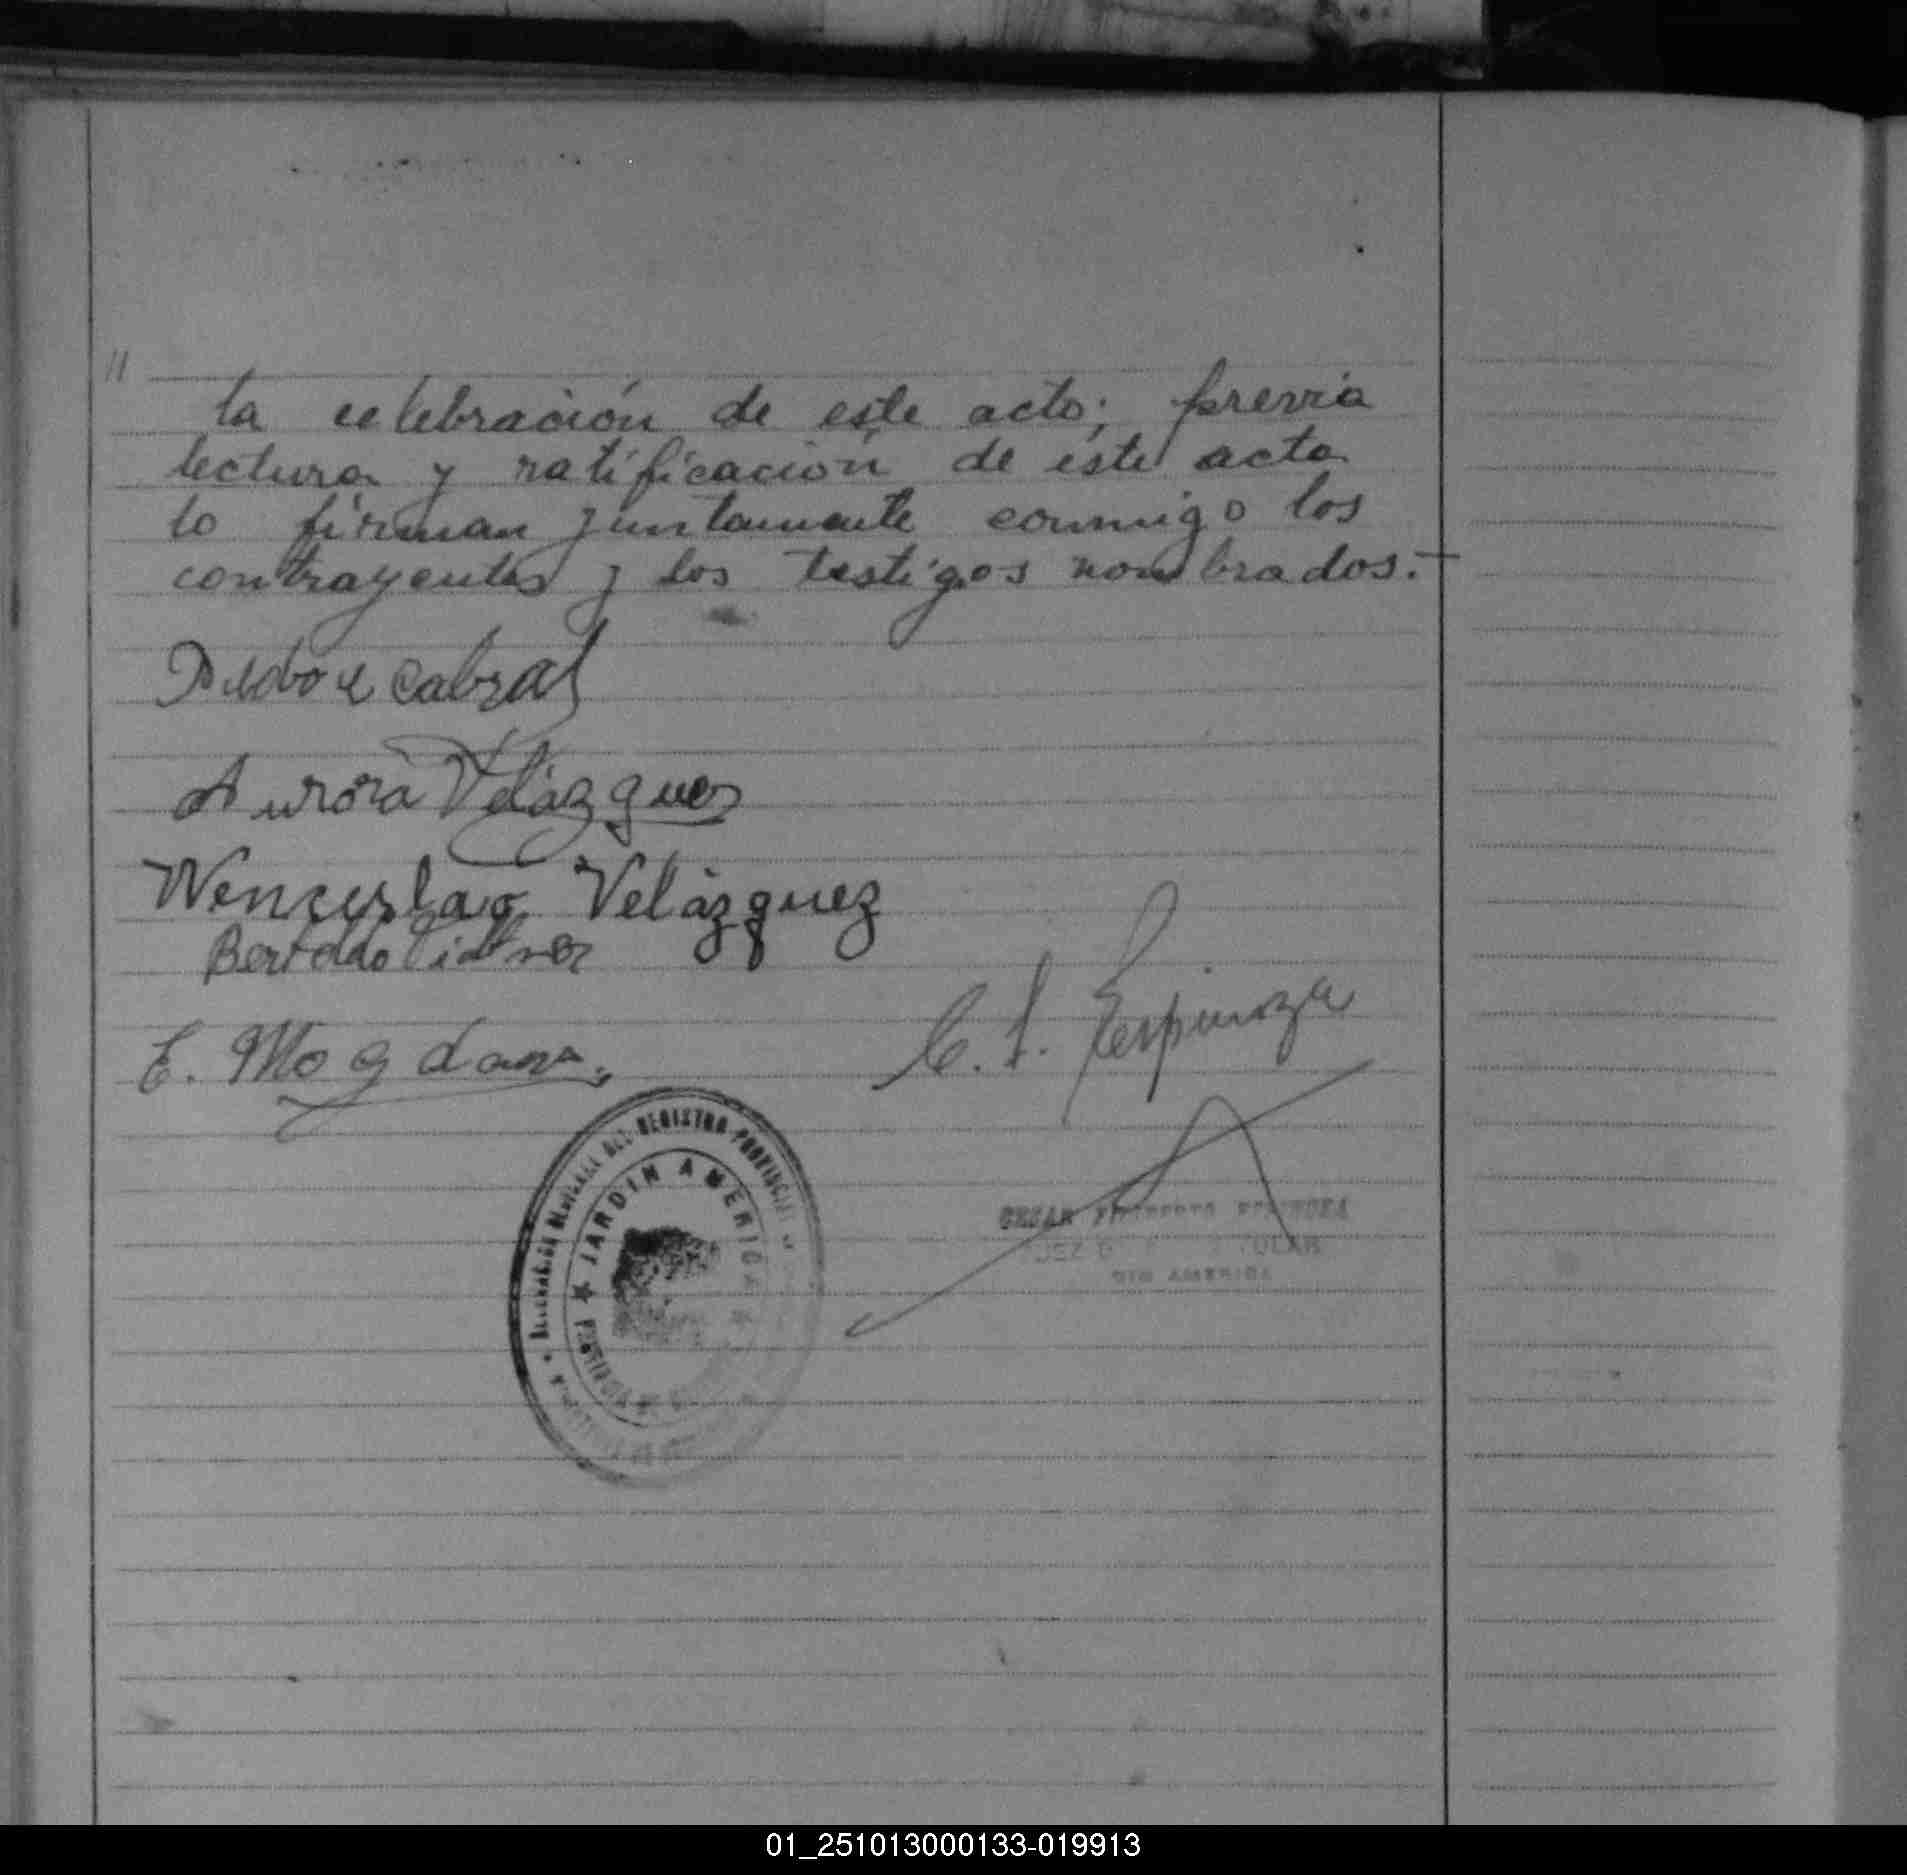 11
la celebración de este acto; previa
lectura y ratificación de este acta
lo firman juntamente conmigo los
contrayentes y los testigos nombrados.-
Cabral
Aurora Velázquez
Wenceslao Velázquez
Bertoldo
E. Mogdans
C. F. Espinoza
DEL REGISTRO PROVINCIAL
JARDIN AMERICA
CESAR ESPINOZA
AMERICA
01_251013000133-019913